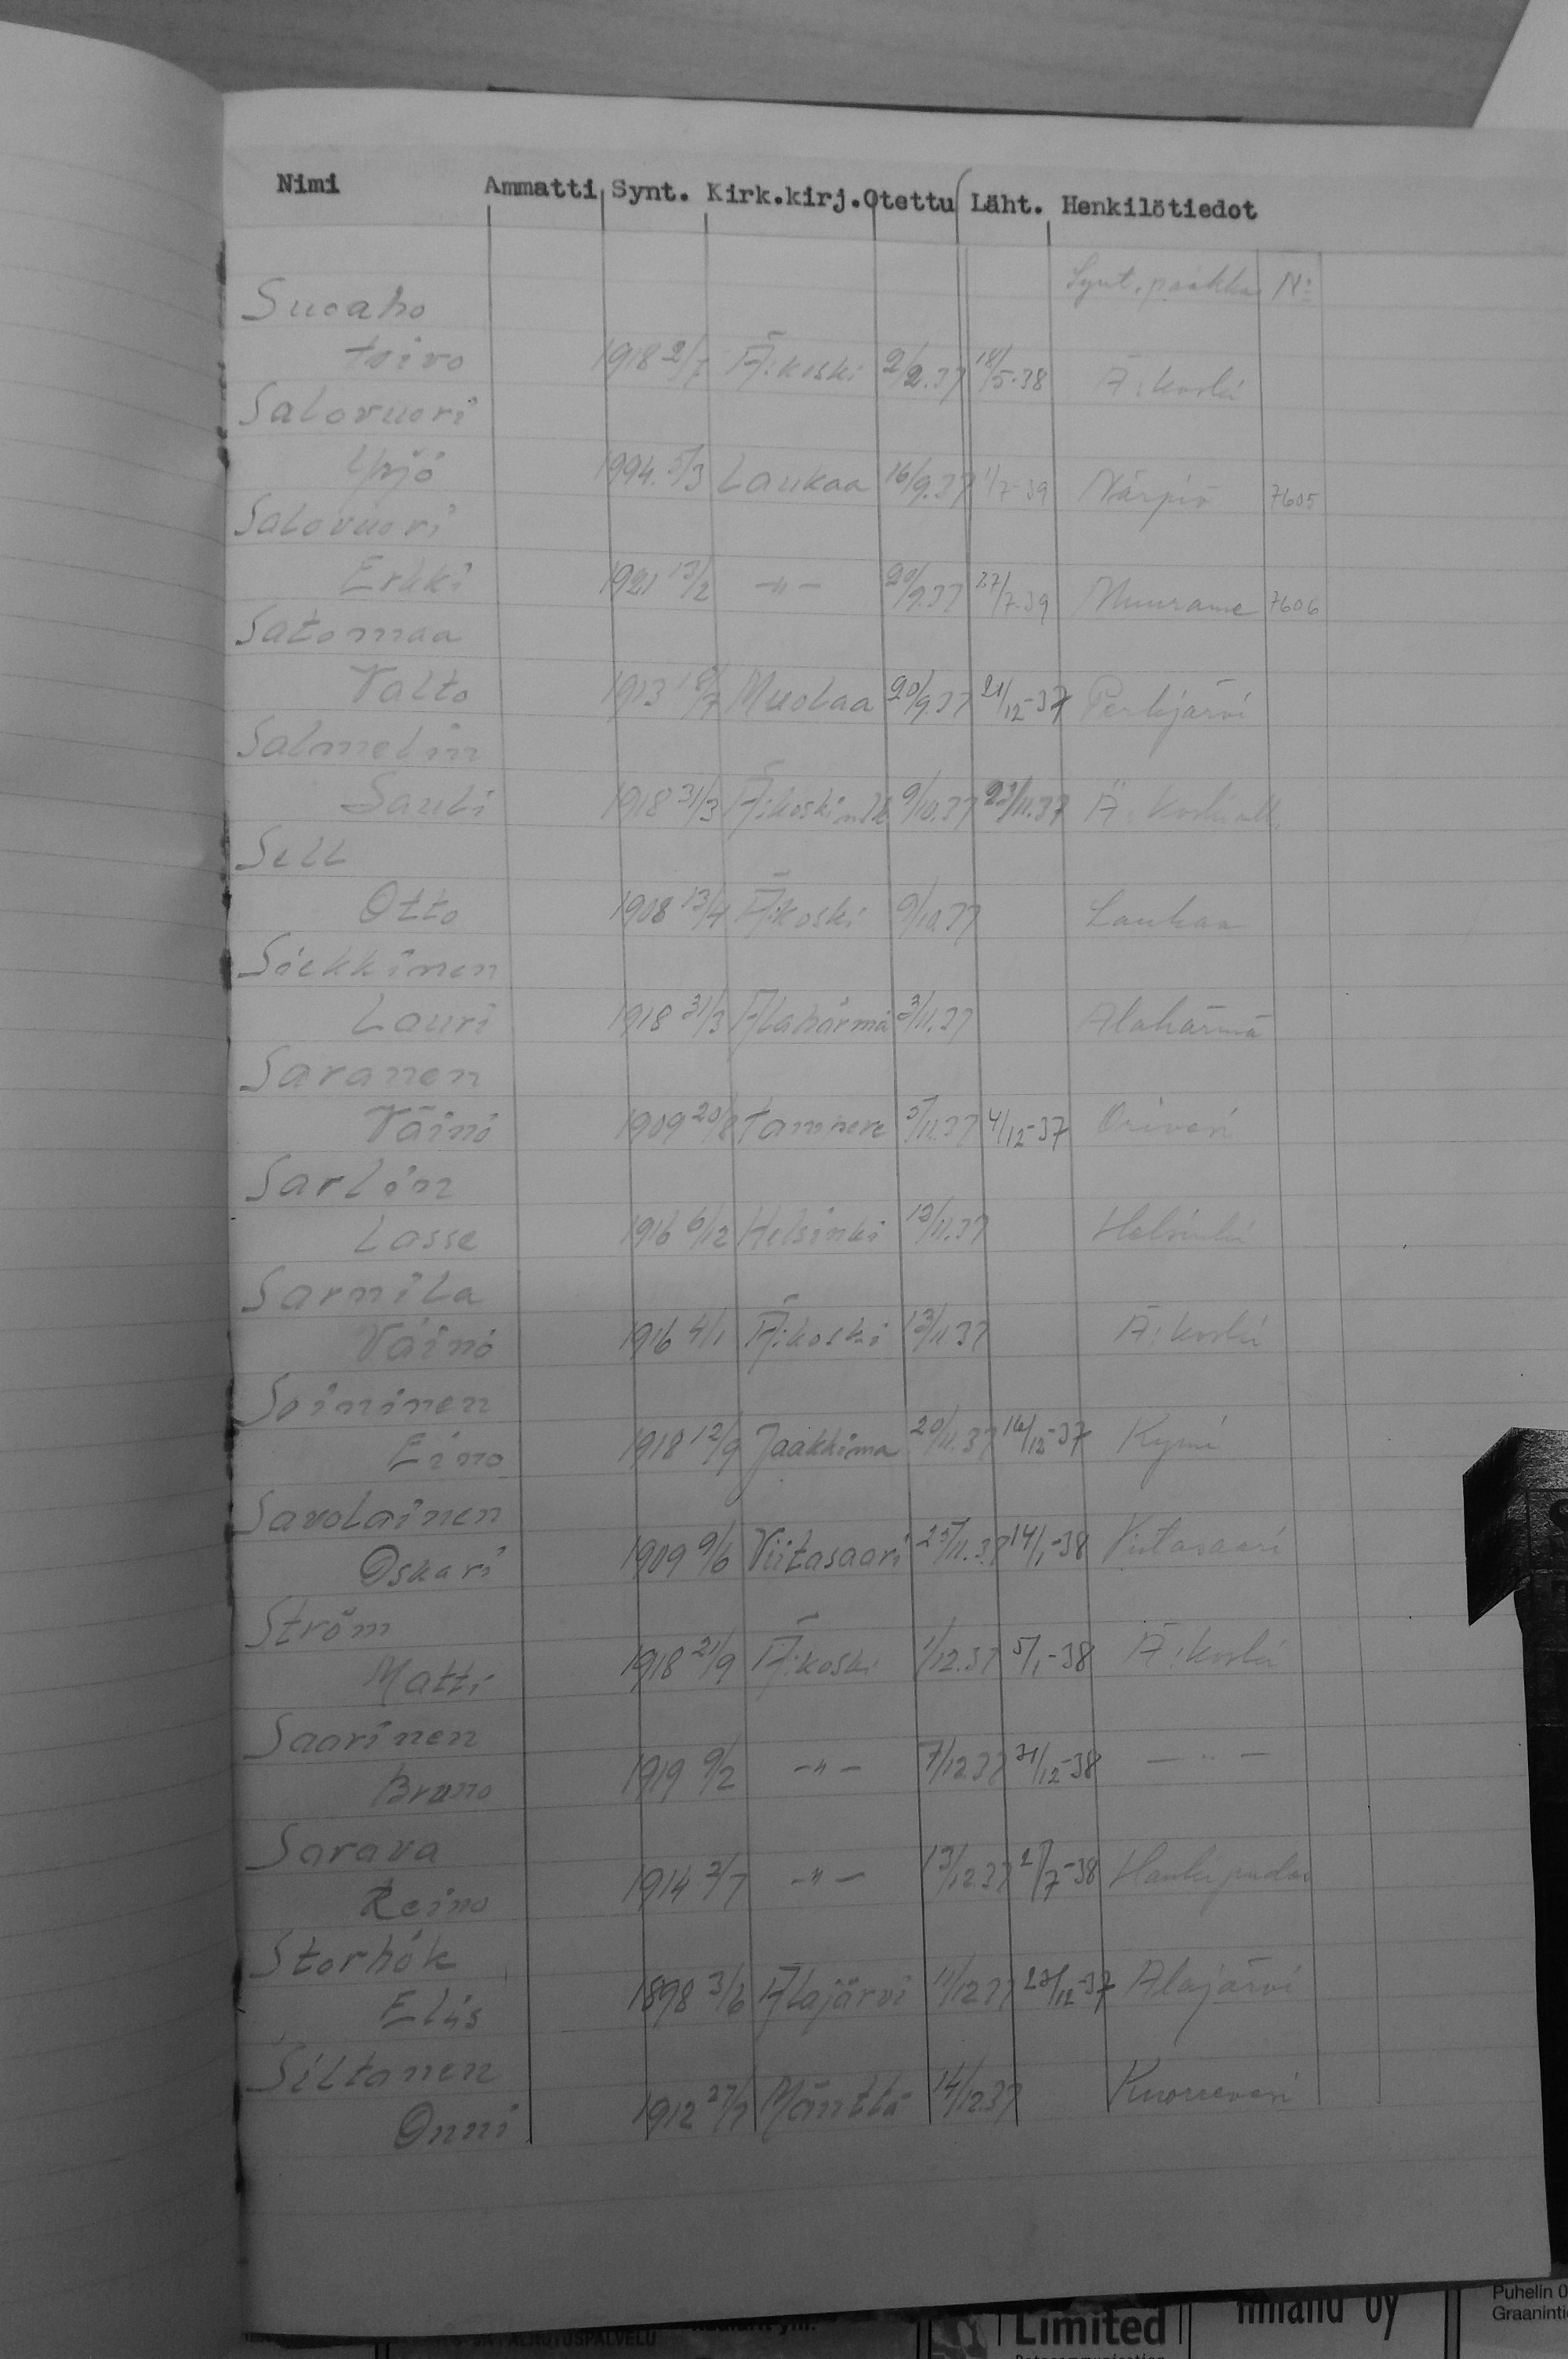 Nimi Ammatti Synt. Kirk.kirj. Otettu Läht. Henkilötiedot
Synt. paikka No
Suoaho
Toivo 1918 2/7 Ä:koski 2/2.37 18/5-38 Ä:koski
Salovuori
Yrjö 1994. 5/3 Laukaa 16/9.37 1/7-39 Närpiö 7605
Salovuori
Erkki 1921 13/2 -"- 20/9.37 27/7-39 Muurame 7606
Satomaa
Valto 1913 18/7 Muolaa 20/9.37 21/12-37 Perkjärvi
Salmelin
Sauli 1918 31/3 Ä:koski mlk 9/10.37 23/11.37 Ä:koski mlk
Sell
Otto 1908 13/4 Ä:koski 9/10.37 Laukaa
Siekkinen
Lauri 1918 31/3 Alahärmä 3/11.37 Alahärmä
Saranen
Väinö 1909 20/8 Tampere 5/11.37 4/12-37 Orivesi
Sarlin
Lasse 1916 6/12 Helsinki 12/11.37 Helsinki
Sarmila
Väinö 1916 4/1 Ä:koski 13/11.37 Ä:koski
Soininen
Eino 1918 12/9 Jaakkima 20/11.37 16/12-37 Kymi
Savolainen
Oskari 1909 9/6 Viitasaari 25/11.37 14/1-38 Viitasaari
Ström
Matti 1918 21/9 Ä:koski 1/12.37 5/1-38 Ä:koski
Saarinen
Bruno 1919 9/2 -"- 7/12.37 31/12-38 -"-
Sarava
Reino 1914 2/7 -"- 13/12.37 27/7-38 Haukipudas
Storhök
Elis 1898 3/6 Alajärvi 11/12.37 23/12-37 Alajärvi
Siltanen
Onni 1912 27/7 Mänttä 14/12.37 Kuorevesi
Limited
finland oy
Puhelin 0
Graaninti